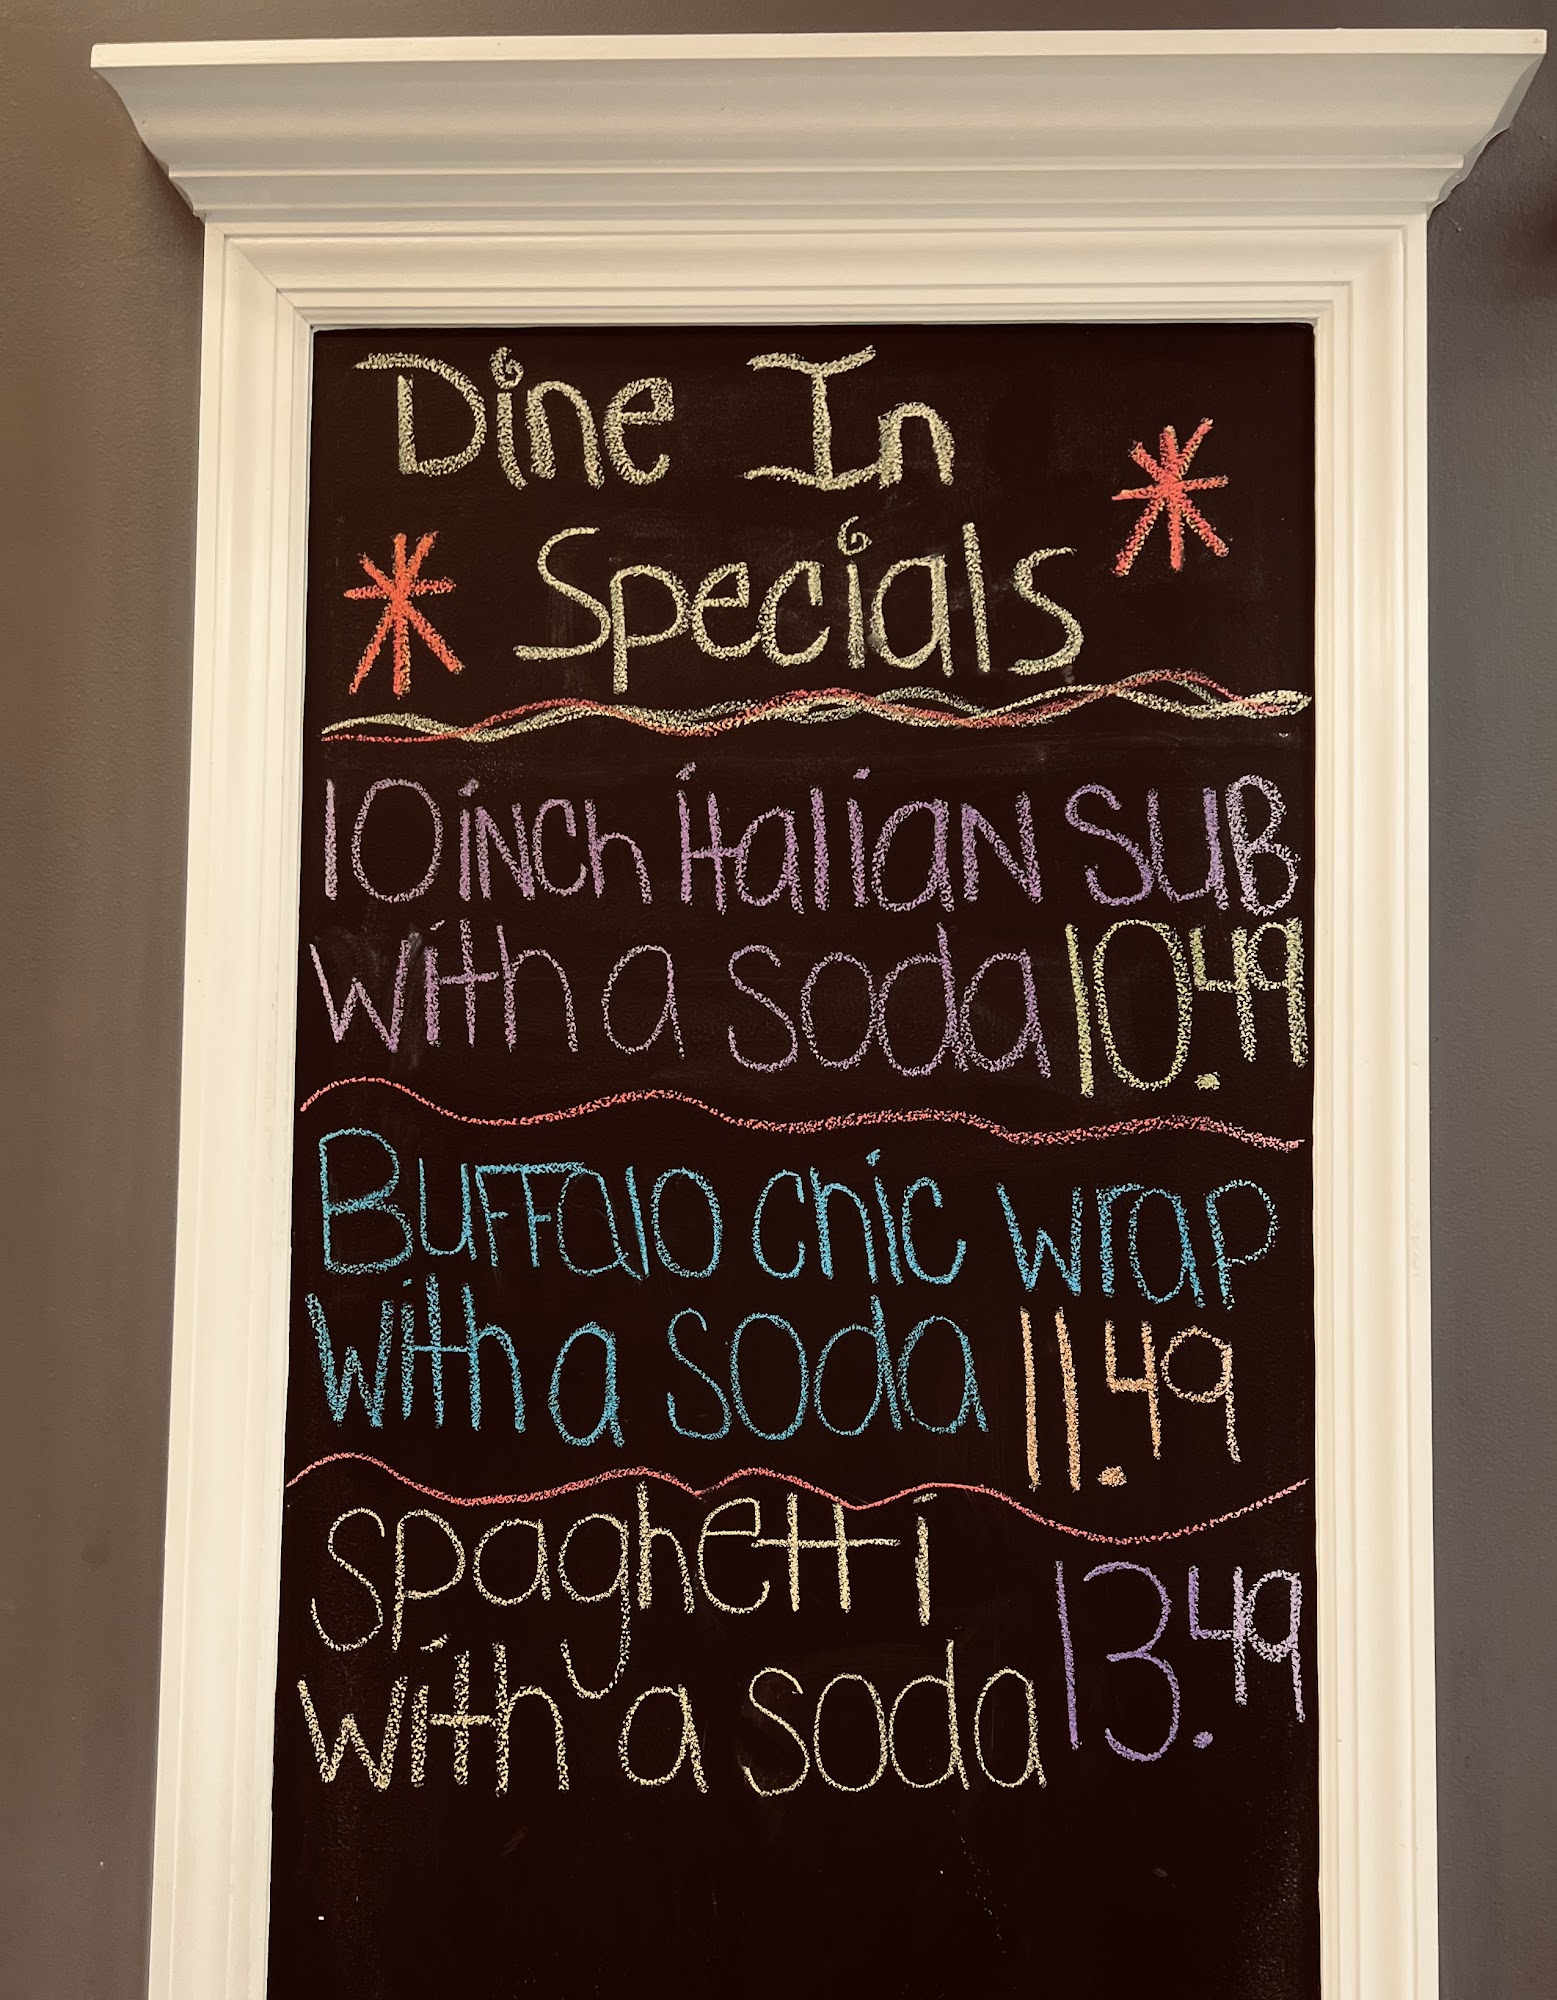 Dine In
Specials
10 inch italian sub
with a soda 10.49
Buffalo chic wrap
with a soda 11.49
spaghetti
with a soda 13.49